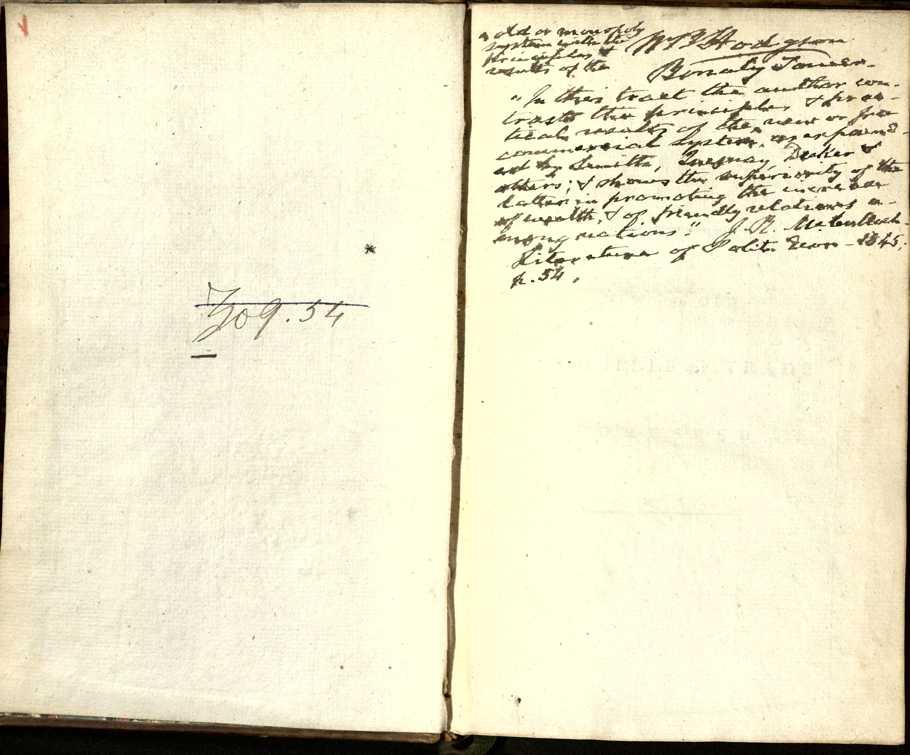 309.54
*
^ old or monopoly
system with the
principles &
results of the
W B Hodgson
Bonaly Tower.
"In this tract the author con-
trasts the principles & prac-
tical results of the new or free
commercial system, as expound-
ed by Smith, Quesnay, Tucker &
others; & shows the superiority of the
latter in promoting the increase
of wealth, & of friendly relations a-
mong nations." J. R. McCulloch.
Literature of Polit. Econ. 1845,
p. 54.